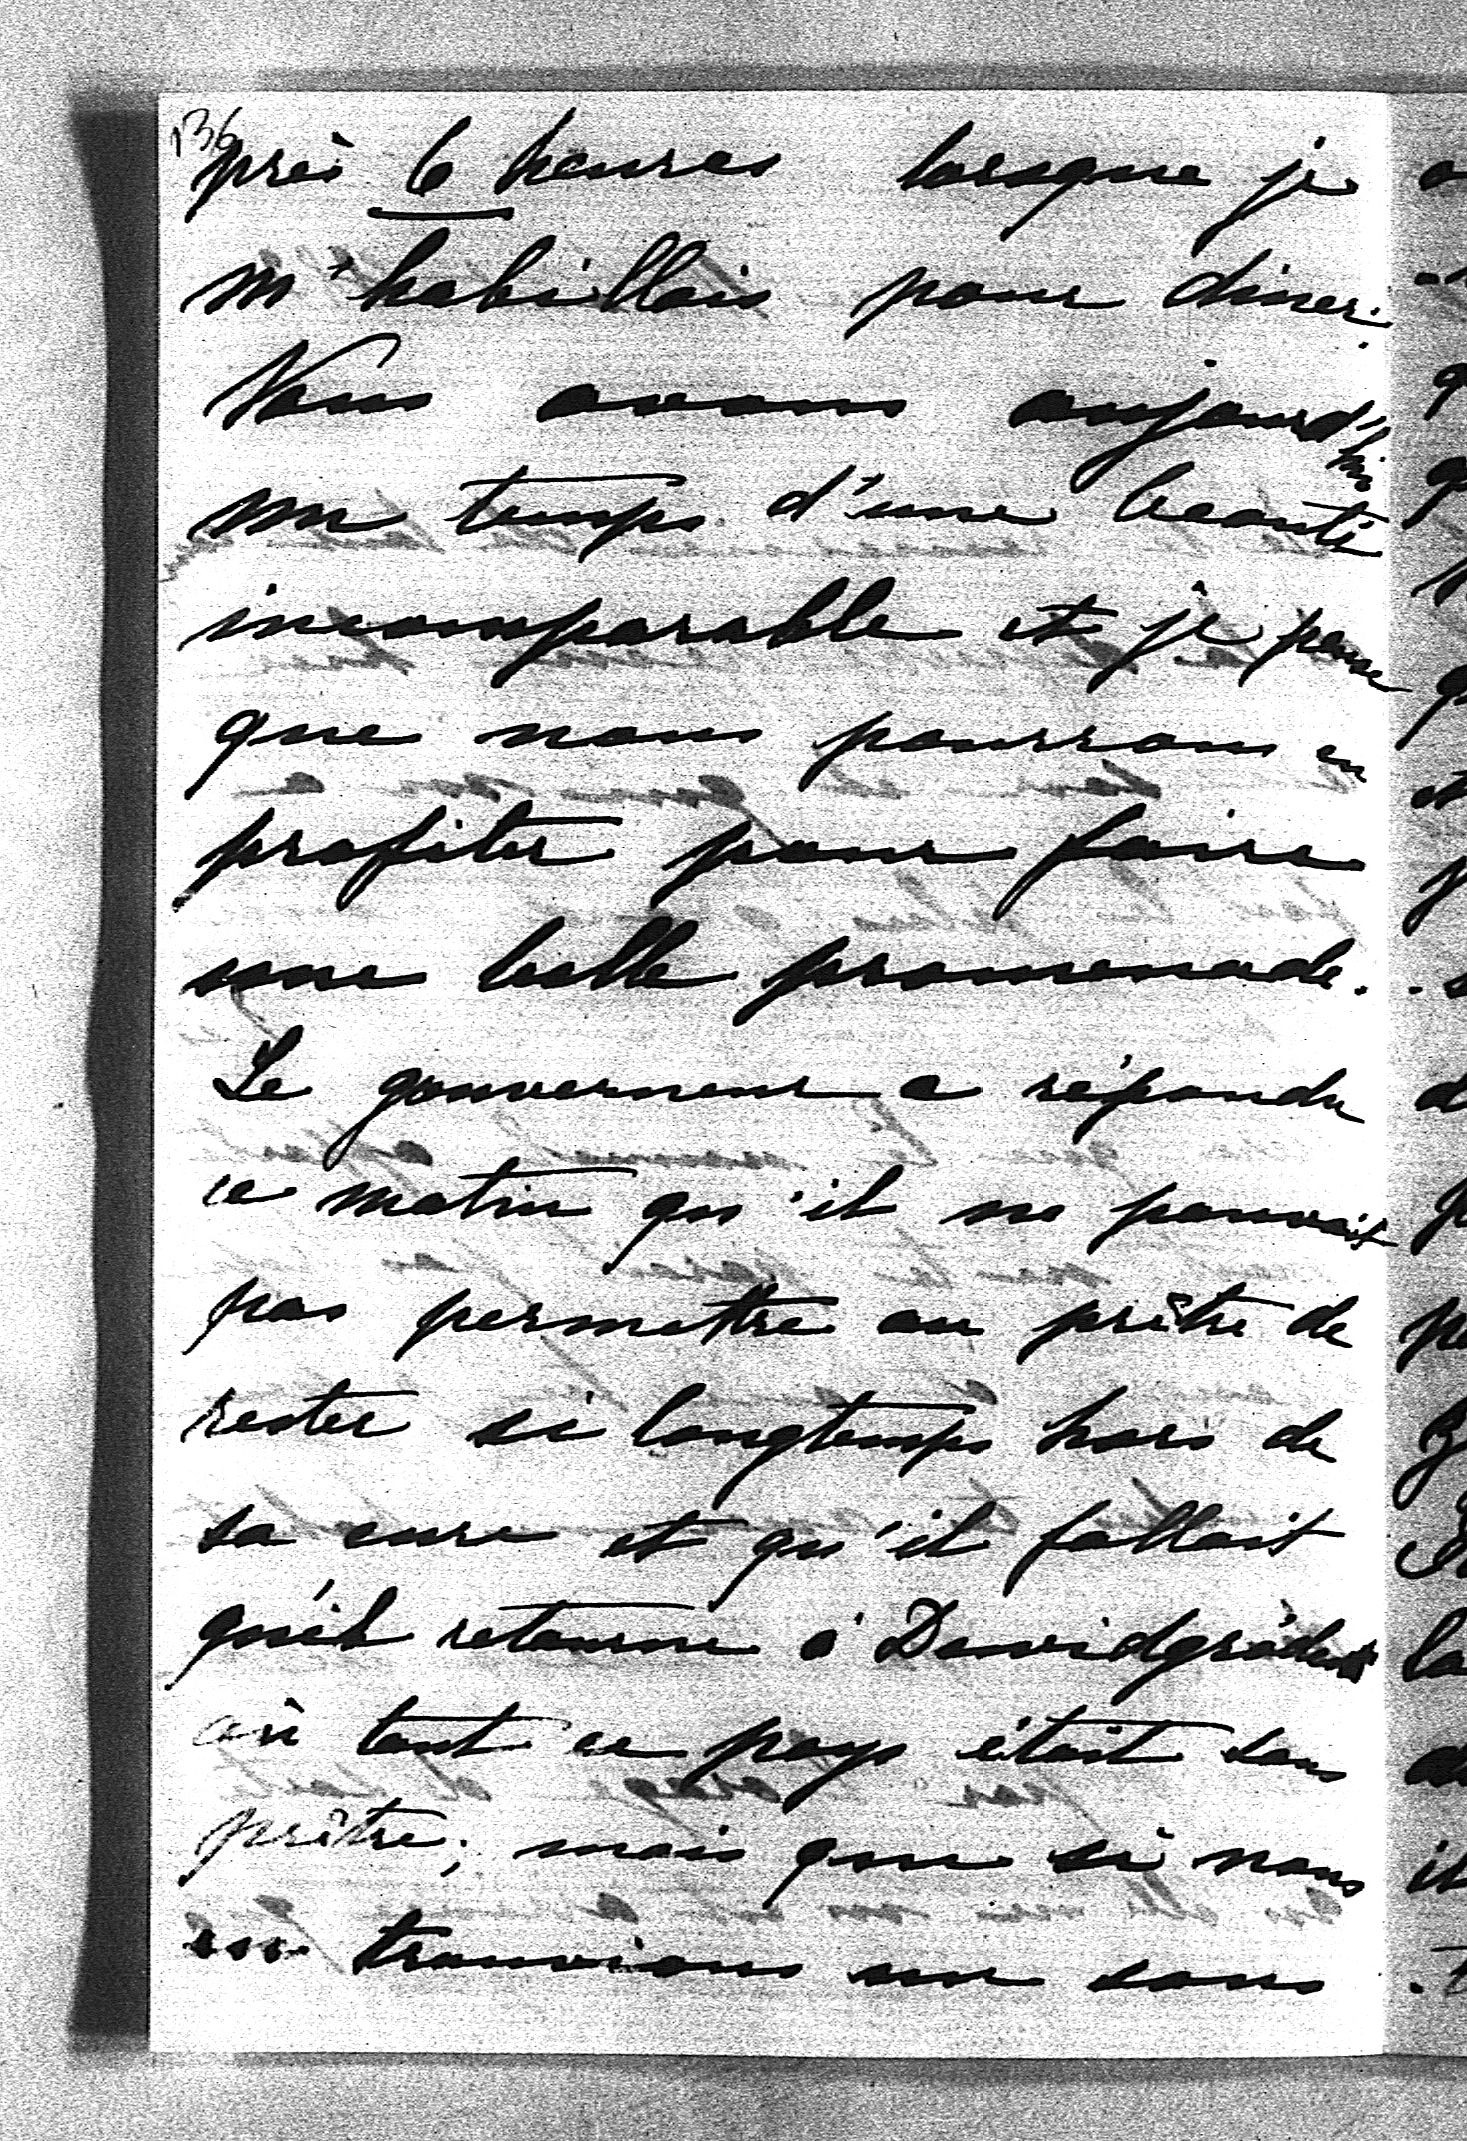 136
près 6 heures lorsque je
m'habillais pour diner.
Nous avons aujourd'hui
un temps d'une beauté
incomparable et je pense
que nous pourrons en
profiter pour faire
une belle promenade.
Le gouverneur a répondu
ce matin qu'il ne pouvait
pas permettre au prêtre de
rester si longtemps hors de
sa cure et qu'il fallait
qu'il retourne à Dawidgródek
où tout ce pays était sans
prêtre, mais que si nous
trouvions un sans